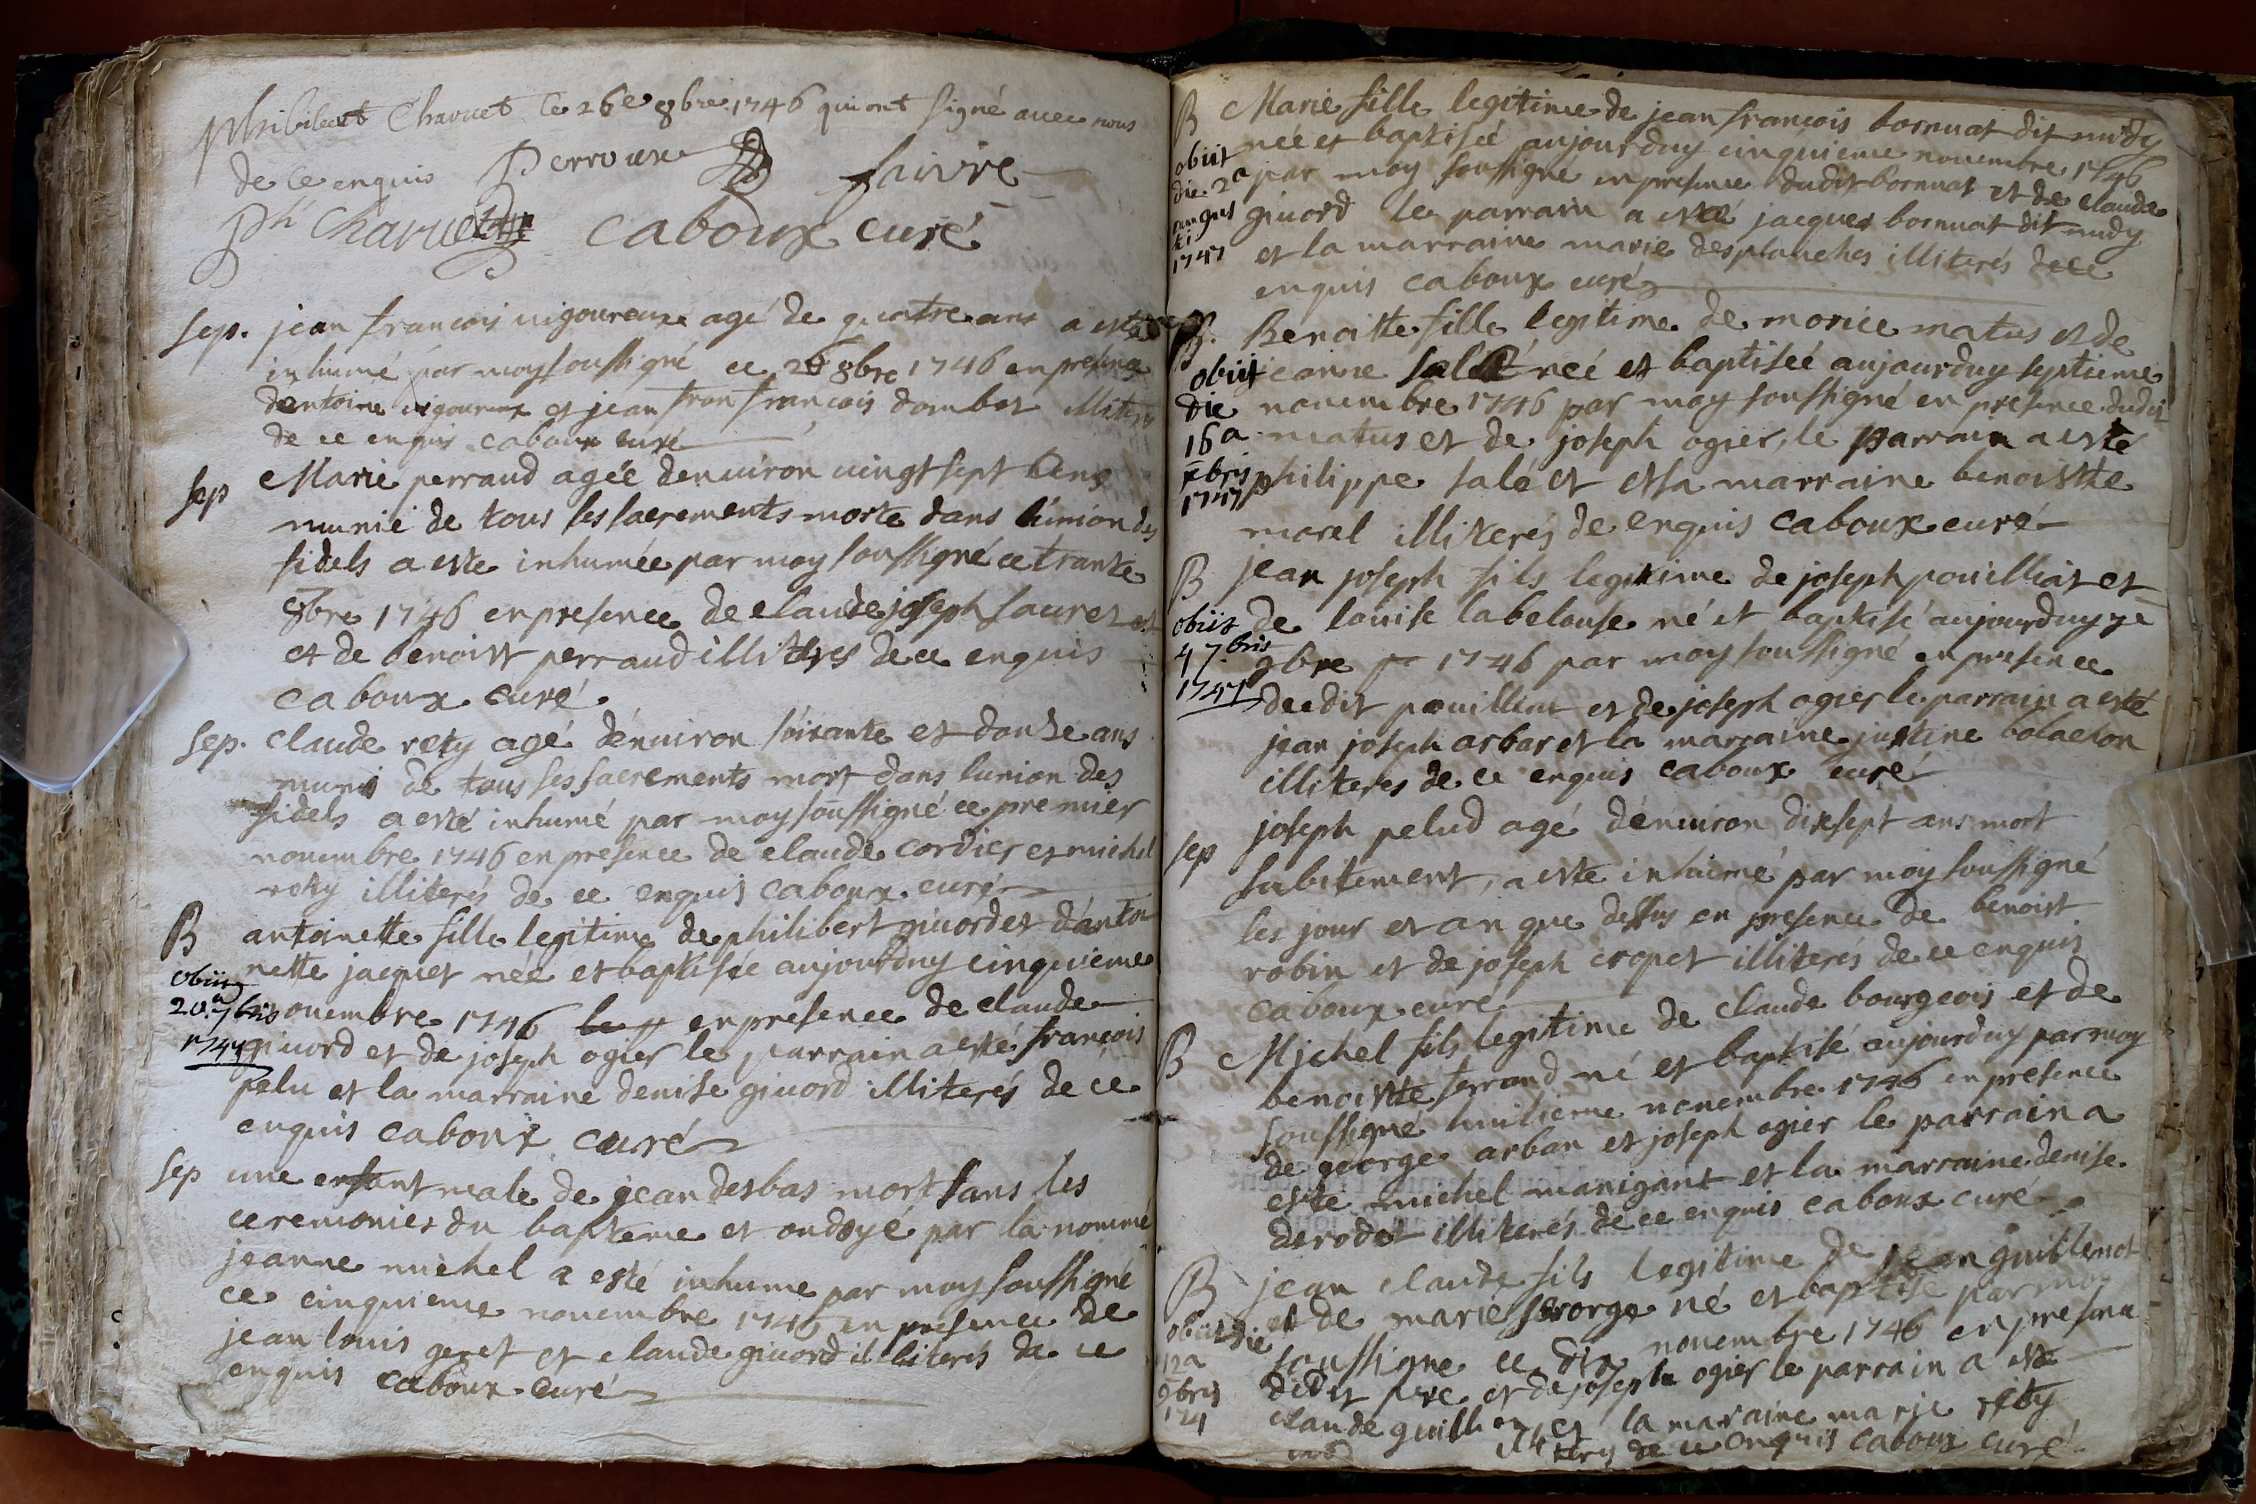 Philibert Charvet le 26e 8bre 1746 qui ont signé avec nous
de ce enquis Perroux faivre
Ph Charvet caboux curé
Sep. jean francois vigoureux agé de quatre ans a esté
inhumé par moy soussigné ce 26 8bre 1746 en presence
dentoine vigoureux et jean fran francois dombet illiteres
de ce enquis caboux curé
Sep Marie perraud agée denviron vingt sept ans
munie de tous ses sacrements morte dans lunion des
fidels a este inhumée par moy soussigné ce trante
8bre 1746 en presence de claude joseph sauret et
et de benoist perraud illiteres de ce enquis
caboux curé
Sep. claude rety agé denviron soixante et douze ans
muni de tous ses sacrements mort dans lunion des
fidels a esté inhumé par moy soussigné ce premier
novembre 1746 en presence de claude cordier et michel
rety illiterés de ce enquis caboux curé
B antoinette fille legitime de philibert givord et dantoi
nette jacquet née et baptisée aujourduy cinquieme
obiit
20a 7bris
1747
novembre 1746 en presence de claude
givord et de joseph ogier le parrain a esté francois
pelu et la marraine denise givord illiterés de ce
enquis caboux curé
Sep une enfant male de jean desbas mort sans les
ceremonies du bapteme et ondoyé par la nommé
jeanne michel a esté inhume par moy soussigné
ce cinquieme novembre 1746 en presence de
jean louis genet et claude givord illiterés de ce
enquis caboux curé
B Marie fille legitime de jean francois bornuat dit midy
née et baptisée aujourduy cinquieme novembre 1746
obiit
die 2a
augus
ti
1747
par moy soussigné en presence dudit bornuat et de claude
givord le parrain a esté jacques bornuat dit midy
et la marraine marie desplanches illiterés de ce
enquis caboux curé
B. Benoitte fille legitime de morice matus et de
jeanne salé née et baptisée aujourduy septieme
obiit
die
16a
xbris
1747
novembre 1746 par moy soussigné en presence dudit
matus et de joseph ogier, le parrain a esté
philippe salé et et la marraine benoistte
morel illiterés de enquis caboux curé
B jean joseph fils legitime de joseph pouilliat et
de louise labelouse né et baptisé aujourduy 7e
obiit
4 7.bris
1747
9bre 1746 par moy soussigné en presence
dudit pouilliat et de joseph ogier le parrain a esté
jean joseph arbar et la marraine justine bolacton
illiteres de ce enquis caboux curé
Sep joseph pelud agé denviron dixsept ans mort
subitement, a este inhumé par moy soussigné
les jour et an que dessus en presence de benoist
robin et de joseph cropet illiterés de ce enquis
caboux curé
B Michel fils legitime de claude bourgeois et de
benoistte ferrand né et baptisé aujourduy par moy
soussigné huitieme novembre 1746 en presence
de george arban et joseph ogier le parrain a
este michel manigant et la marraine denise
derodet illiterés de ce enquis caboux curé
B jean claude fils legitime de jean guillemot
et de marie george né et baptisé par moy
obiit die
12a
9bris
174
soussigne ce dix novembre 1746 en presence
dudit pere et de joseph ogier le parrain a este
claude guillemot et la maraine marie rety
illiterés de ce enquis caboux curé